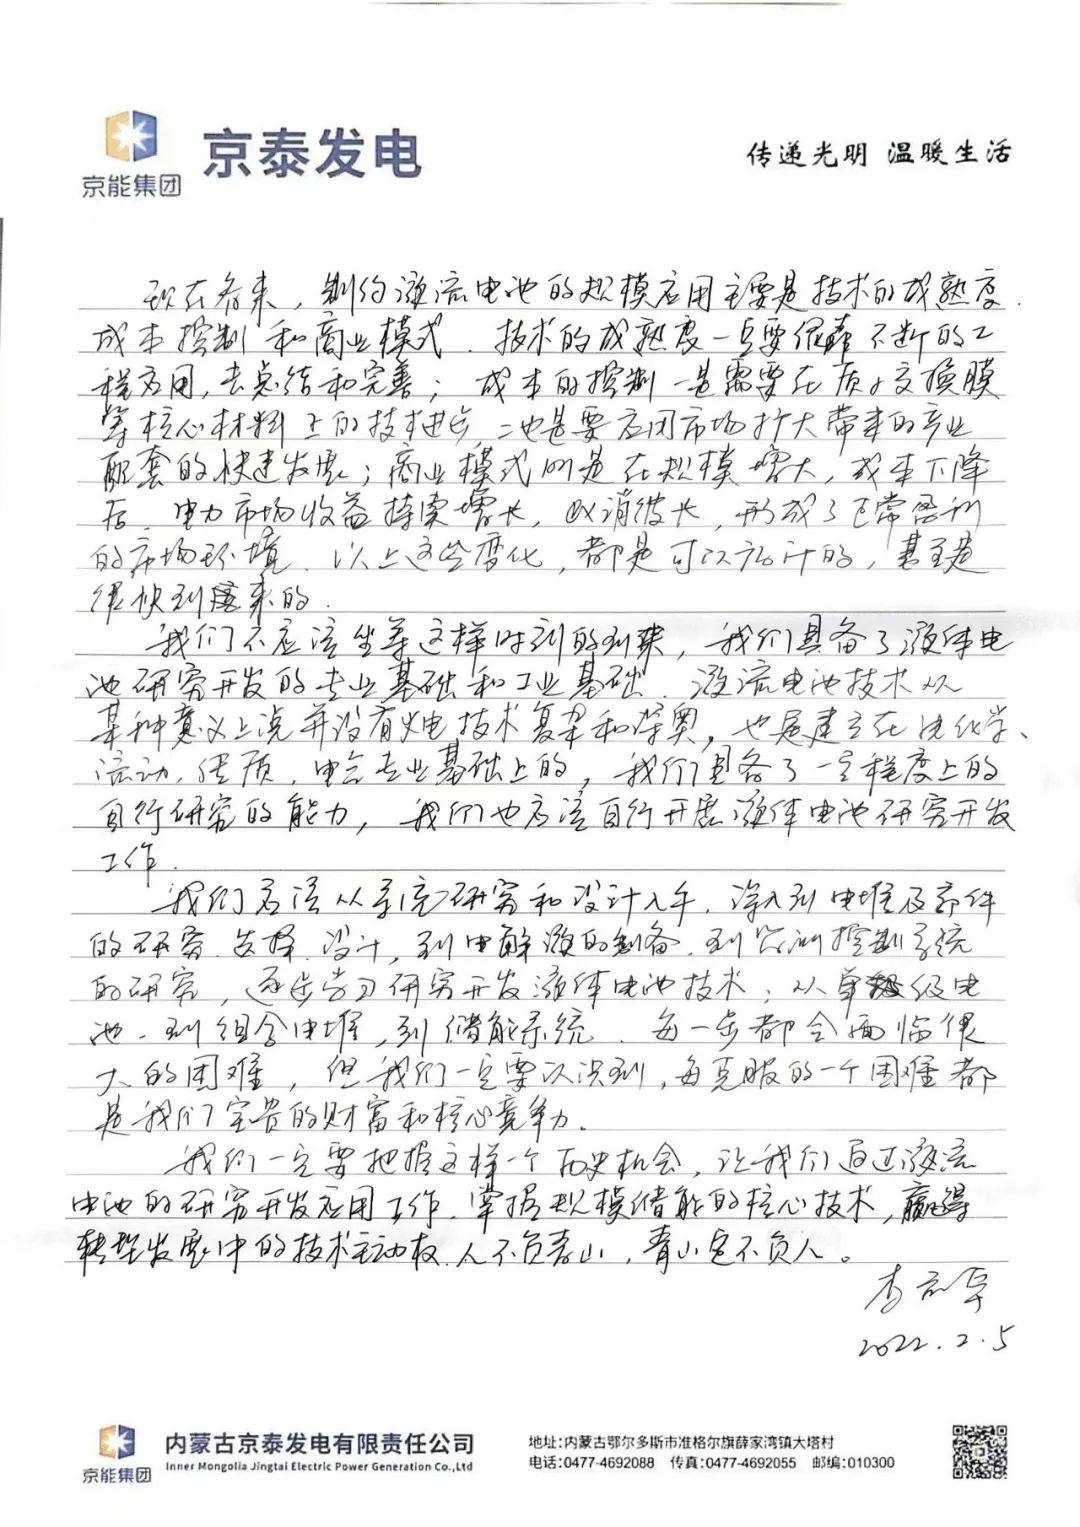 京能集团
京泰发电
传递光明 温暖生活
现在看来，制约液流电池的规模应用主要是技术的成熟度、
成本控制和商业模式。技术的成熟度一定要依靠不断的工
程应用，去总结和完善；成本的控制一是需要在质子交换膜
等核心材料上的技术进步，二也是要应用市场扩大带来的产业
配套的快速发展；商业模式则是在规模增大，成本下降
后，电力市场收益持续增长，此消彼长，形成了正常盈利
的市场环境。以上这些变化，都是可以预计的，甚至是
很快到来的。
我们不应该坐等这样时刻的到来，我们具备了液体电
池研究开发的专业基础和工业基础。液流电池技术从
某种意义上说并没有火电技术复杂和深奥，也是建立在电化学、
流动、传质、电气专业基础上的，我们具备了一定程度上的
自行研究的能力，我们也应该自行开展液体电池研究开发
工作。
我们应该从系统研究和设计入手，深入到电堆及部件
的研究、选择、设计，到电解液的制备，到监测控制系统
的研究，逐步学习研究开发液体电池技术；从单级电
池，到组合电堆，到储能系统，每一步都会面临很
大的困难，但我们一定要认识到，每克服的一个困难都
是我们宝贵的财富和核心竞争力。
我们一定要把握这样一个历史机会，让我们通过液流
电池的研究开发应用工作，掌握规模储能的核心技术，赢得
转型发展中的技术主动权。人不负青山，青山定不负人。
2022.2.5
京能集团
内蒙古京泰发电有限责任公司
Inner Mongolia Jingtai Electric Power Generation Co.,Ltd
地址:内蒙古鄂尔多斯市准格尔旗薛家湾镇大塔村
电话:0477-4692088 传真:0477-4692055 邮编:010300